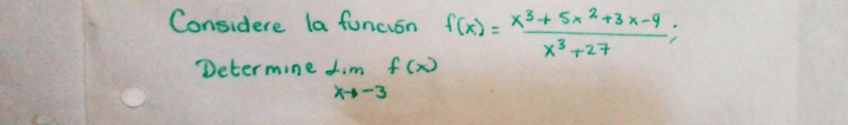 Considere la función f(x) = x³ + 5x² + 3x - 9 / x³ + 27 ;
Determine Lim f(x)
x→-3